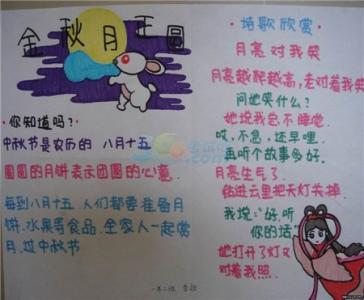 金秋月正圆
·你知道吗?·
中秋节是农历的 八月十五
圆圆的月饼表示团圆的心意
每到八月十五,人们都要准备月
饼.水果等食品.全家人一起赏
月.过中秋节
·诗歌欣赏·
月亮对我笑
月亮越爬越高,老对着我笑
问她笑什么?
她说我怎不睡觉
哎,不急,还早哩
再听个故事多好.
月亮生气了.
钻进云里把天灯关掉
我说:"好,听
你的话"
她打开了灯又
对着我照.
一年二班